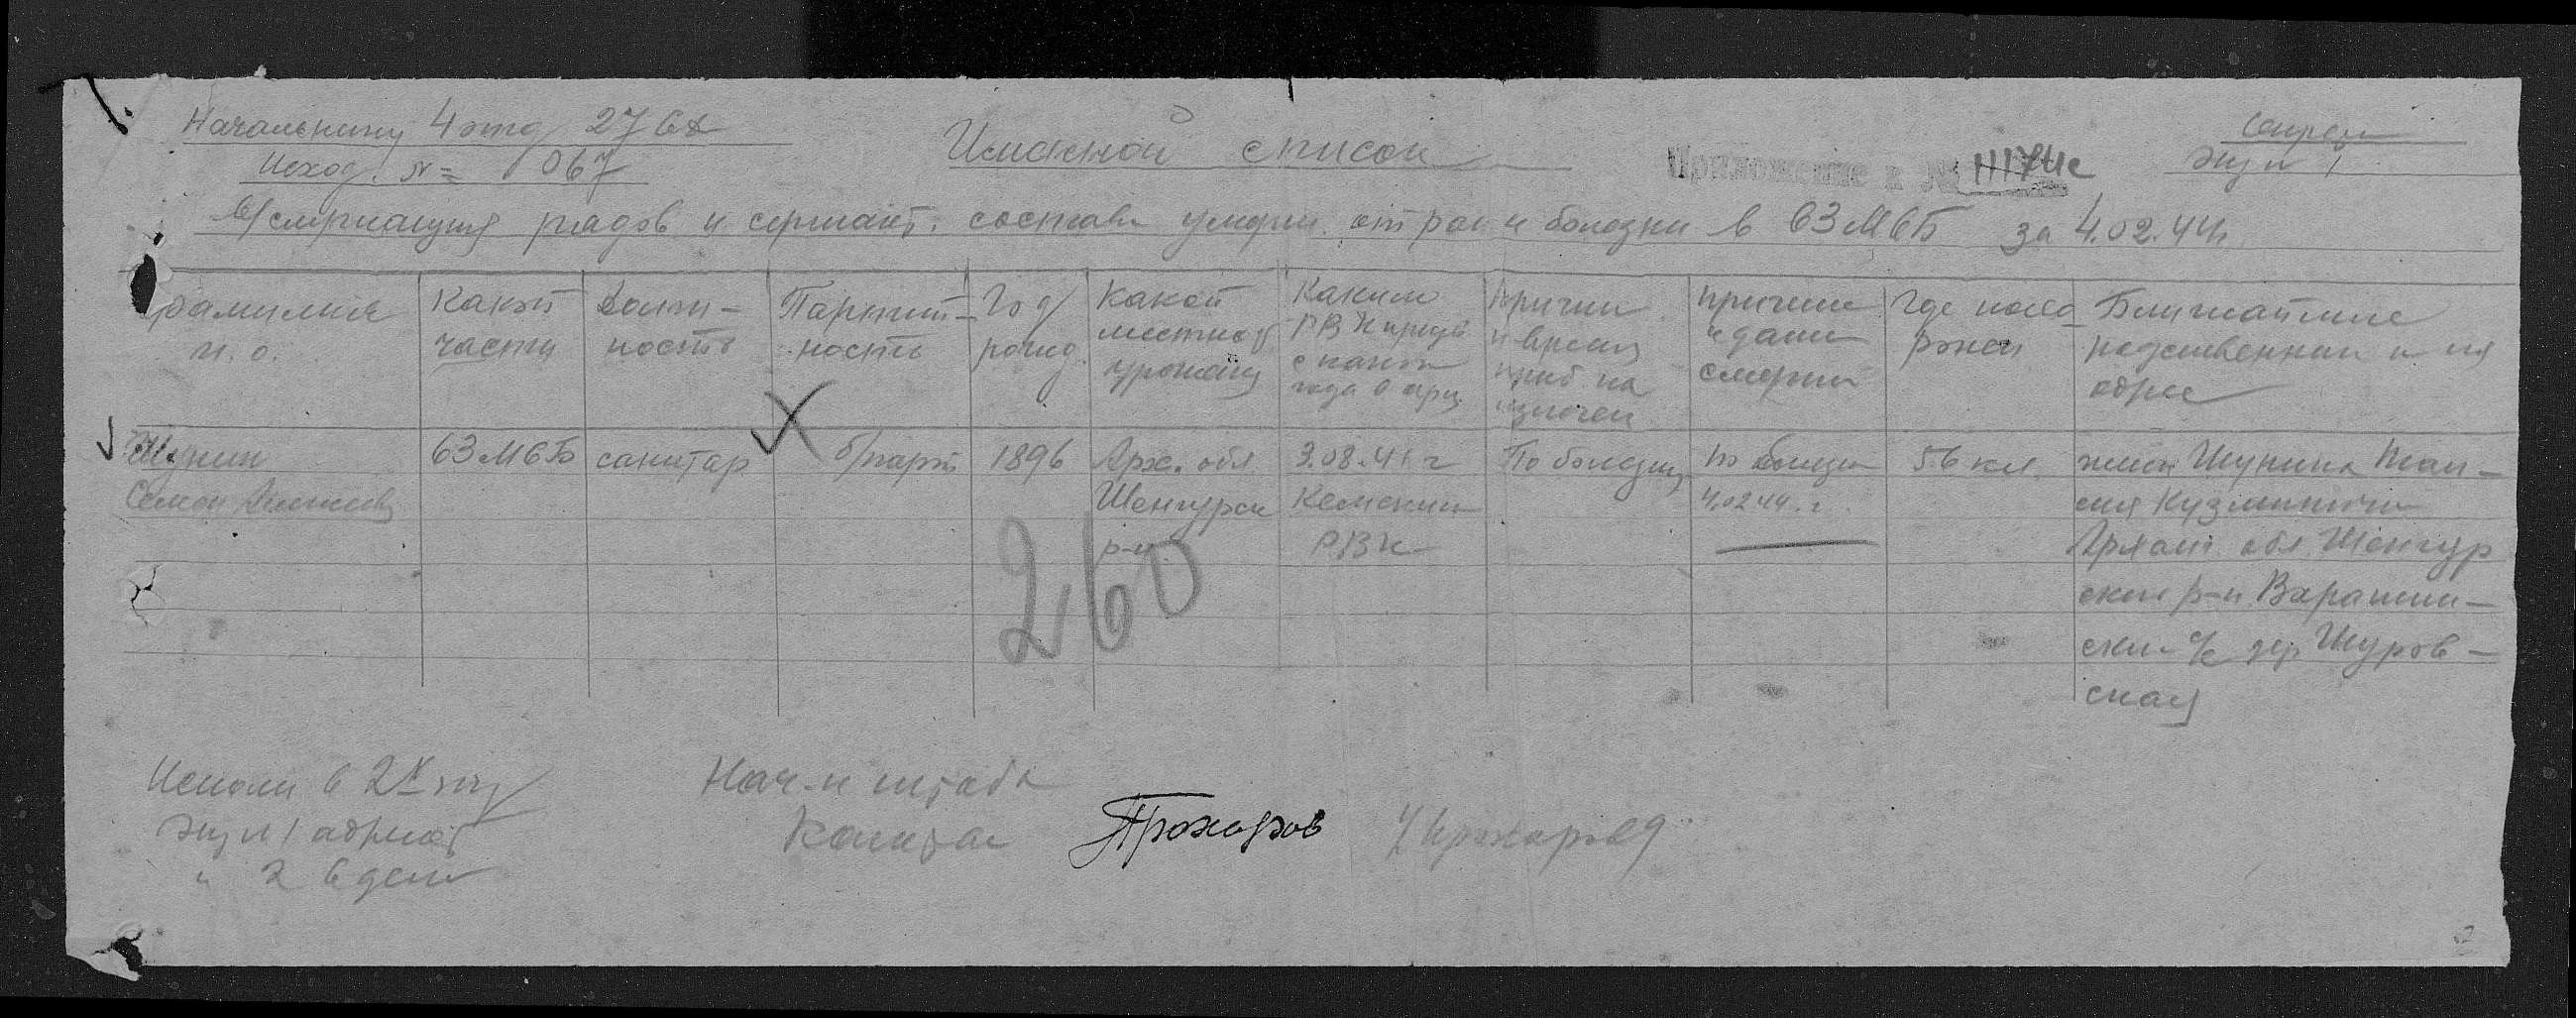 Начальнику 4 отд
Исход. № 067
Именной список
Приложение к № 11174с
Секрет
Экз № 1
рядов и сержант. состава умерш. от ран и болезни в 63 МСБ за 4.02.44
фамилия
и. о.
Какой
части
Долж-
ность
Партий-
ность
Год
рожд.
Какой
местнос
урожен
Каким
РВК призв
с какого
года в арм.
Причин
и время
приб. на
излечен
причина
и дата
смерти
Где похо-
ронен
Ближайшие
родственники и их
адрес
Шунин
Семен
63 МСБ
санитар
б/парт
1896
Арх. обл
Шенкурск
р-н
3.08.41 г
Кемским
РВК
По болезни
по болезни
4.02.44 г.
56 км
жена Шунина Таи-
сия Кузьминична
Арханг. обл. Шенкур
ский р-н
ский с/с дер Шуров-
ская
260
Исполн в 2х экз
Экз № 1 адресат
" 2 в дело
Нач-к штаба
Капитан
Прохоров
/Прохоров/